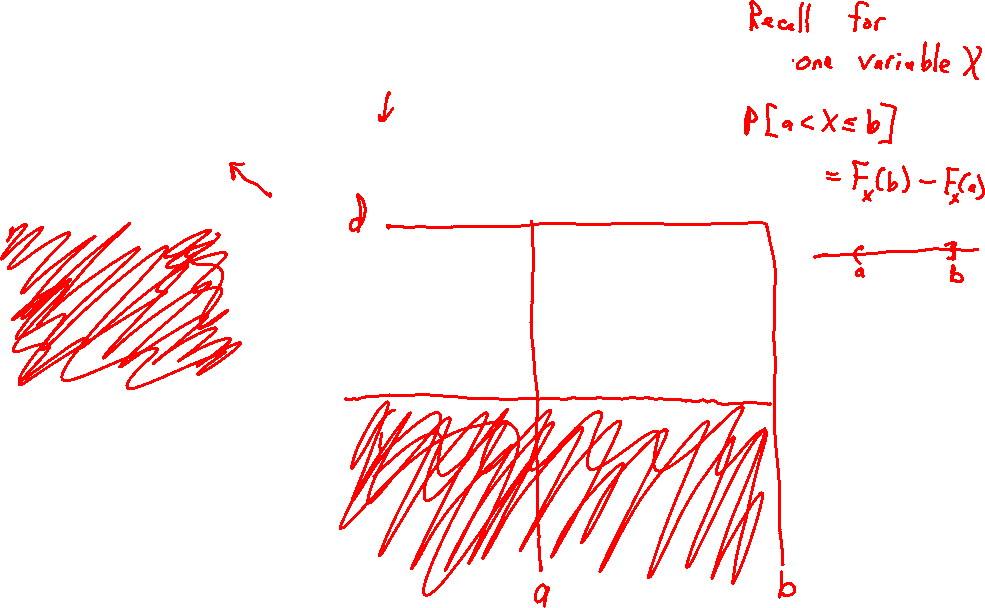 Recall for
one variable X
P[a < X ≤ b]
= F_X(b) - F_X(a)
a b
d
a b